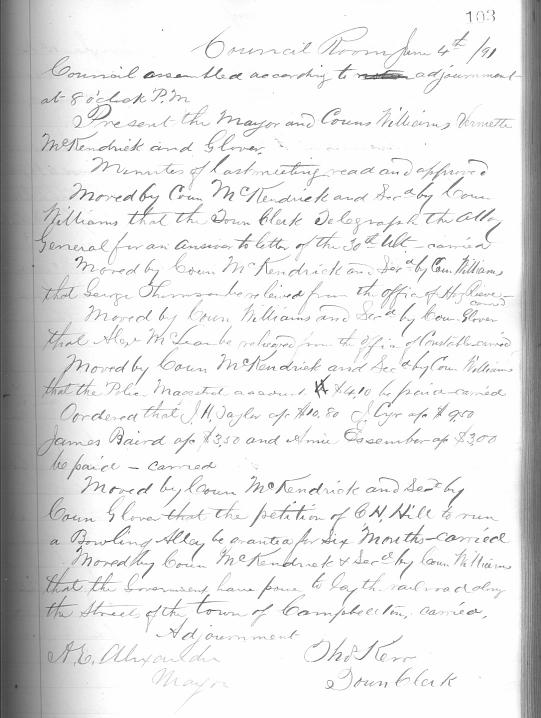 103
Council Room June 4th /91
Council assembled according to adjournment
at 8 o'clock P.M
Present the Mayor and Couns Williams Vernette
McKendrick and Glover
Minutes of last meeting read and approved
Moved by Coun McKendrick and Secd by Coun
Williams that the Town Clerk Telegraph the Atty
General for an answer to letter of the 30th Ult - carried
Moved by Coun McKendrick and Secd by Coun Williams
that George Thomson be releived from the office of Hy
carried
Moved by Coun Williams and Secd by Coun Glover
that Alexr McLean be releived from the Office of Constable carried
Moved by Coun McKendrick and Secd by Coun Williams
that the Police account $4.10 be paid - carried
Oordered that J.H. Taylor a/c $10.80 J Cyr a/c $9.50
James Baird a/c $3.50 and Essember a/c $3.00
be paid - carried
Moved by Coun McKendrick and Secd by
Coun Glover that the petition of C.H. Hill to run
a Bowling Alley be granted for six Months - carried
Moved by Coun McKendrick & Secd by Coun Williams
that the Government have power to lay th railroad along
the Streets of the town of Campbellton, carried,
Adjournment
A.E. Alexander Thos Kerr
Mayor Town Clerk